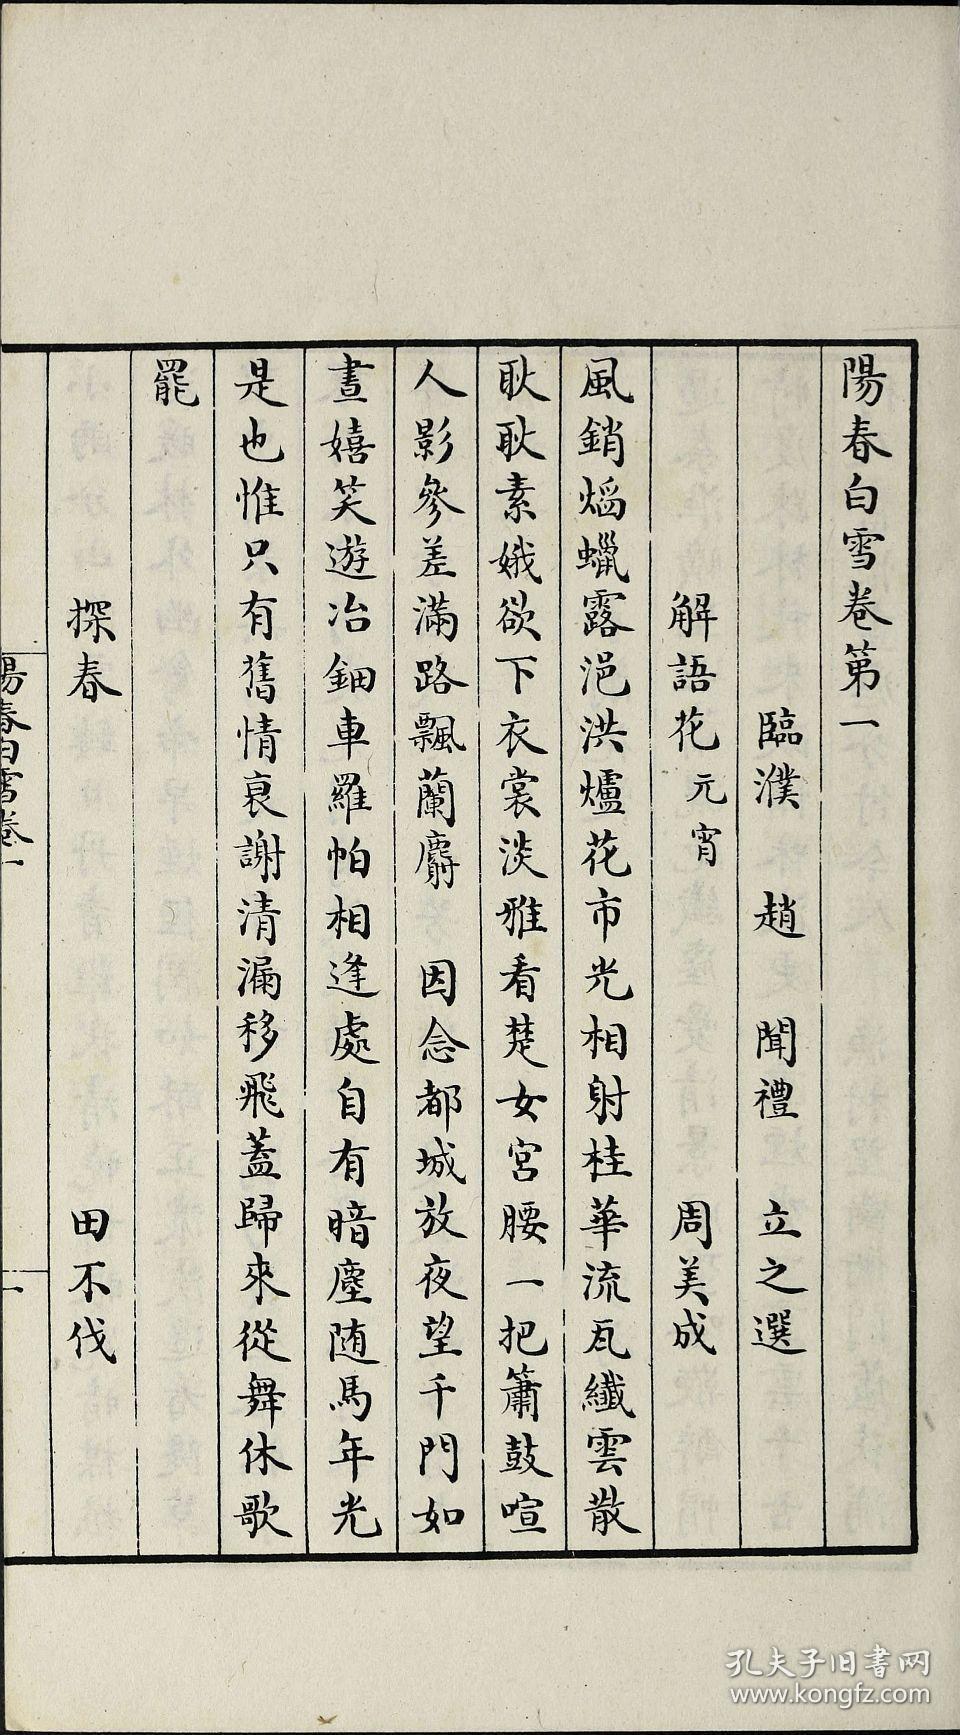 陽春白雪卷第一
臨濮 趙 聞禮 立之選
解語花 元宵 周美成
風銷熖蠟露浥洪爐花市光相射桂華流瓦纖雲散
耿耿素娥欲下衣裳淡雅看楚女宮腰一把簫鼓喧
人影參差滿路飄蘭麝 因念都城放夜望千門如
晝嬉笑遊冶鈿車羅帕相逢處自有暗塵随馬年光
是也惟只有舊情衰謝清漏移飛蓋歸來從舞休歌
罷
探春 田不伐
陽春白雪卷一
一
孔夫子旧書网
www.kongfz.com